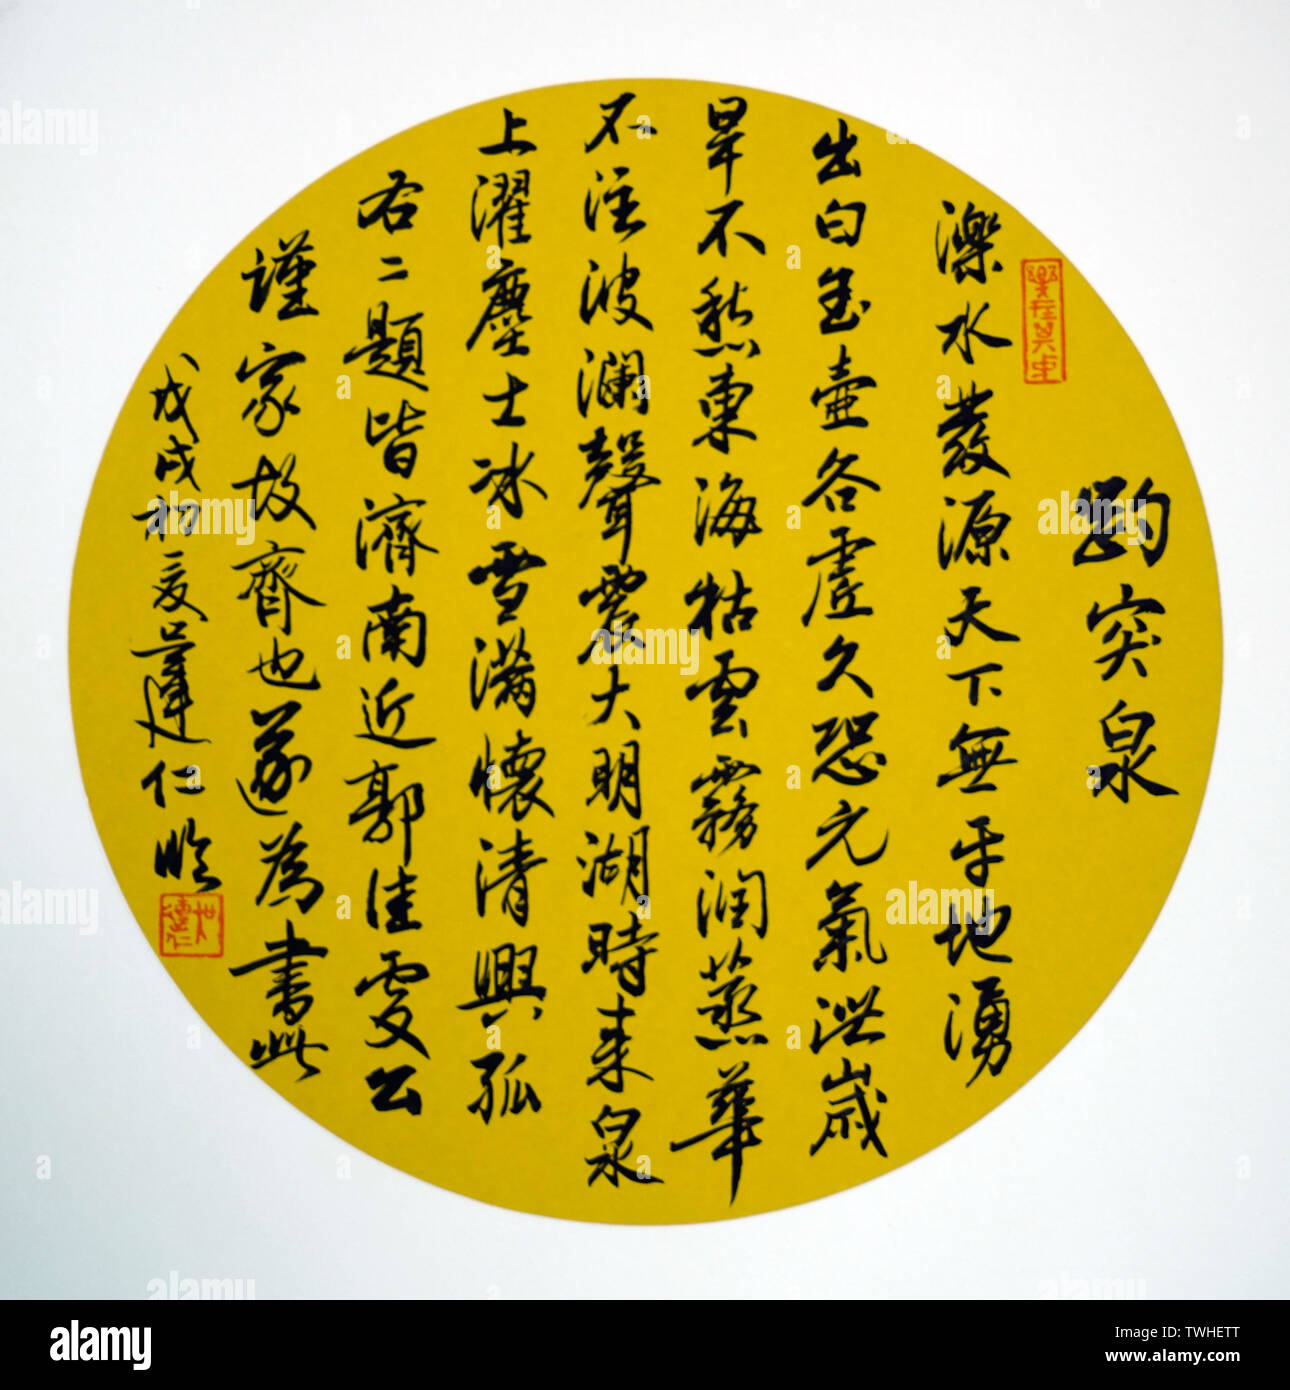 趵突泉
濼水發源天下無平地湧
出白玉壺谷虛久恐元氣泄歲
旱不愁東海枯雲霧潤蒸華
不注波瀾聲震大明湖時來泉
上濯塵土冰雪滿懷清興孤
右二題皆濟南近郭佳處公
謹家故齊也遂為書此
戊戌初夏仁臨
alamy
Image ID: TWHETT
www.alamy.com